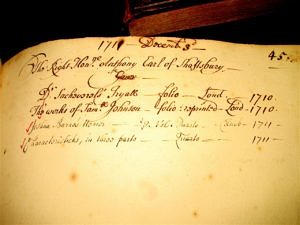 1711 Decemb 3
45
The Right Hon.ble Anthony Earl of Shaftsbury
Dr Sacheverel's Tryall — folio — Lond — 1710.
The works of Sam.ll Johnson — folio reprinted — Lond — 1710.
1711
Characteristicks, in three parts — 1711